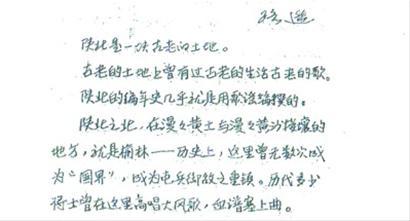 路遥
陕北是一块古老的土地。
古老的土地上曾有过古老的生活古老的歌。
陕北的编年史几乎就是用歌谣编撰的。
陕北之北，在漫漫黄土与漫漫黄沙接壤的
地方，就是榆林——历史上，这里曾无数次成
为“国界”，成为屯兵御敌之重镇。历代多少
将士曾在这里高唱大风歌，血谱塞上曲。